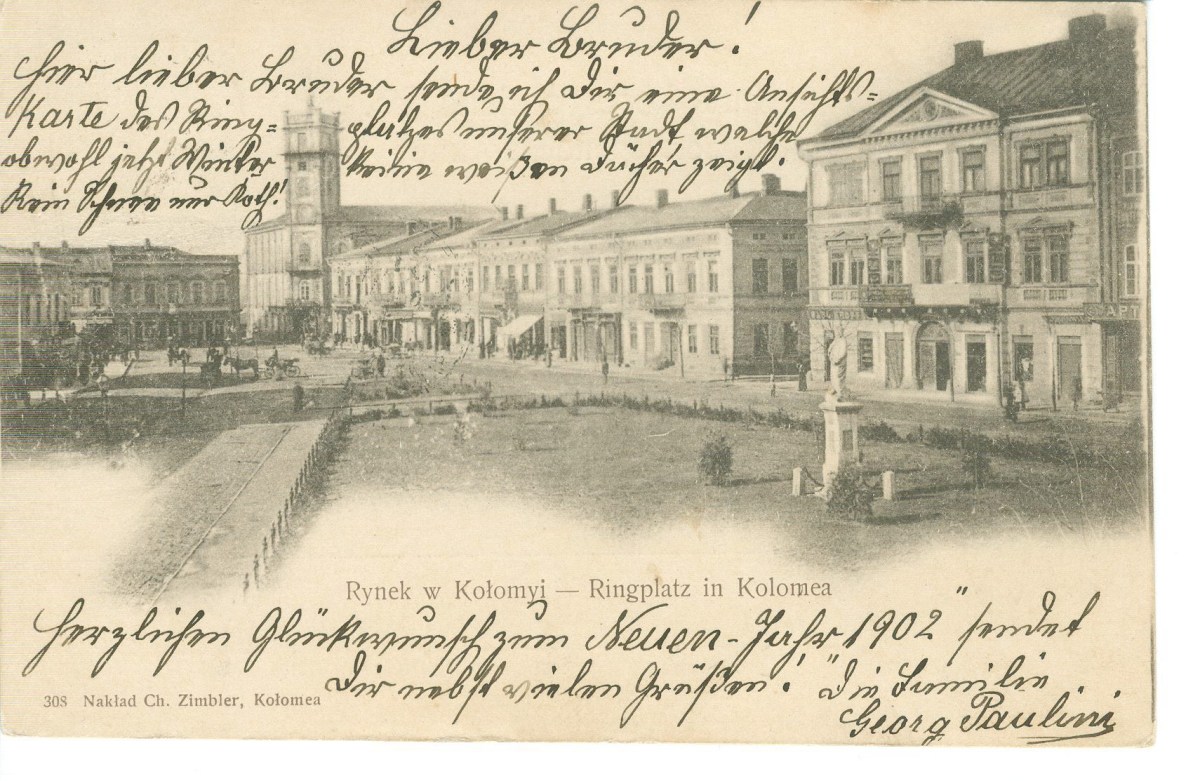 Lieber Bruder!
Hier lieber Bruder sende ich Dir eine Ansichts-
Karte des Ring- platzes unserer Stadt welche
obwohl jetzt Winter keine weißen Dächer zeigt.
Kein Schnee nur Koth!
APT
Rynek w Kołomyi — Ringplatz in Kolomea
Herzlichen Glückwunsch zum Neuen-Jahr 1902" sendet
Dir nebst vielen Grüßen! "die Familie
308 Nakład Ch. Zimbler, Kołomea
Georg Paulini